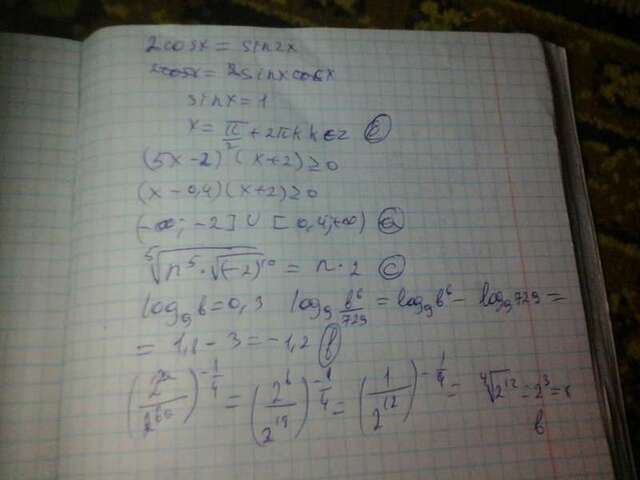 2cosx = sin2x
2cosx = 2sinxcosx
sinx = 1
x = π/2 + 2πk k∈z б
(5x-2)(x+2)≥0
(x-0,4)(x+2)≥0
(-∞; -2] ∪ [0,4;+∞) a
⁵√(n⁵·√(-2)¹⁰) = n·2 c
log₉b = 0,3 log₉ b⁶/729 = log₉b⁶ - log₉729 =
= 1,8 - 3 = -1,2 b
= (2⁶/2¹⁸)^(-1/4) = (1/2¹²)^(-1/4) = ⁴√2¹² = 2³ = 8
b